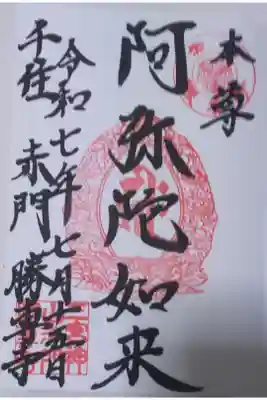 本尊
阿弥陀如来
令和七年 七月十五日
千住 赤門 勝専寺